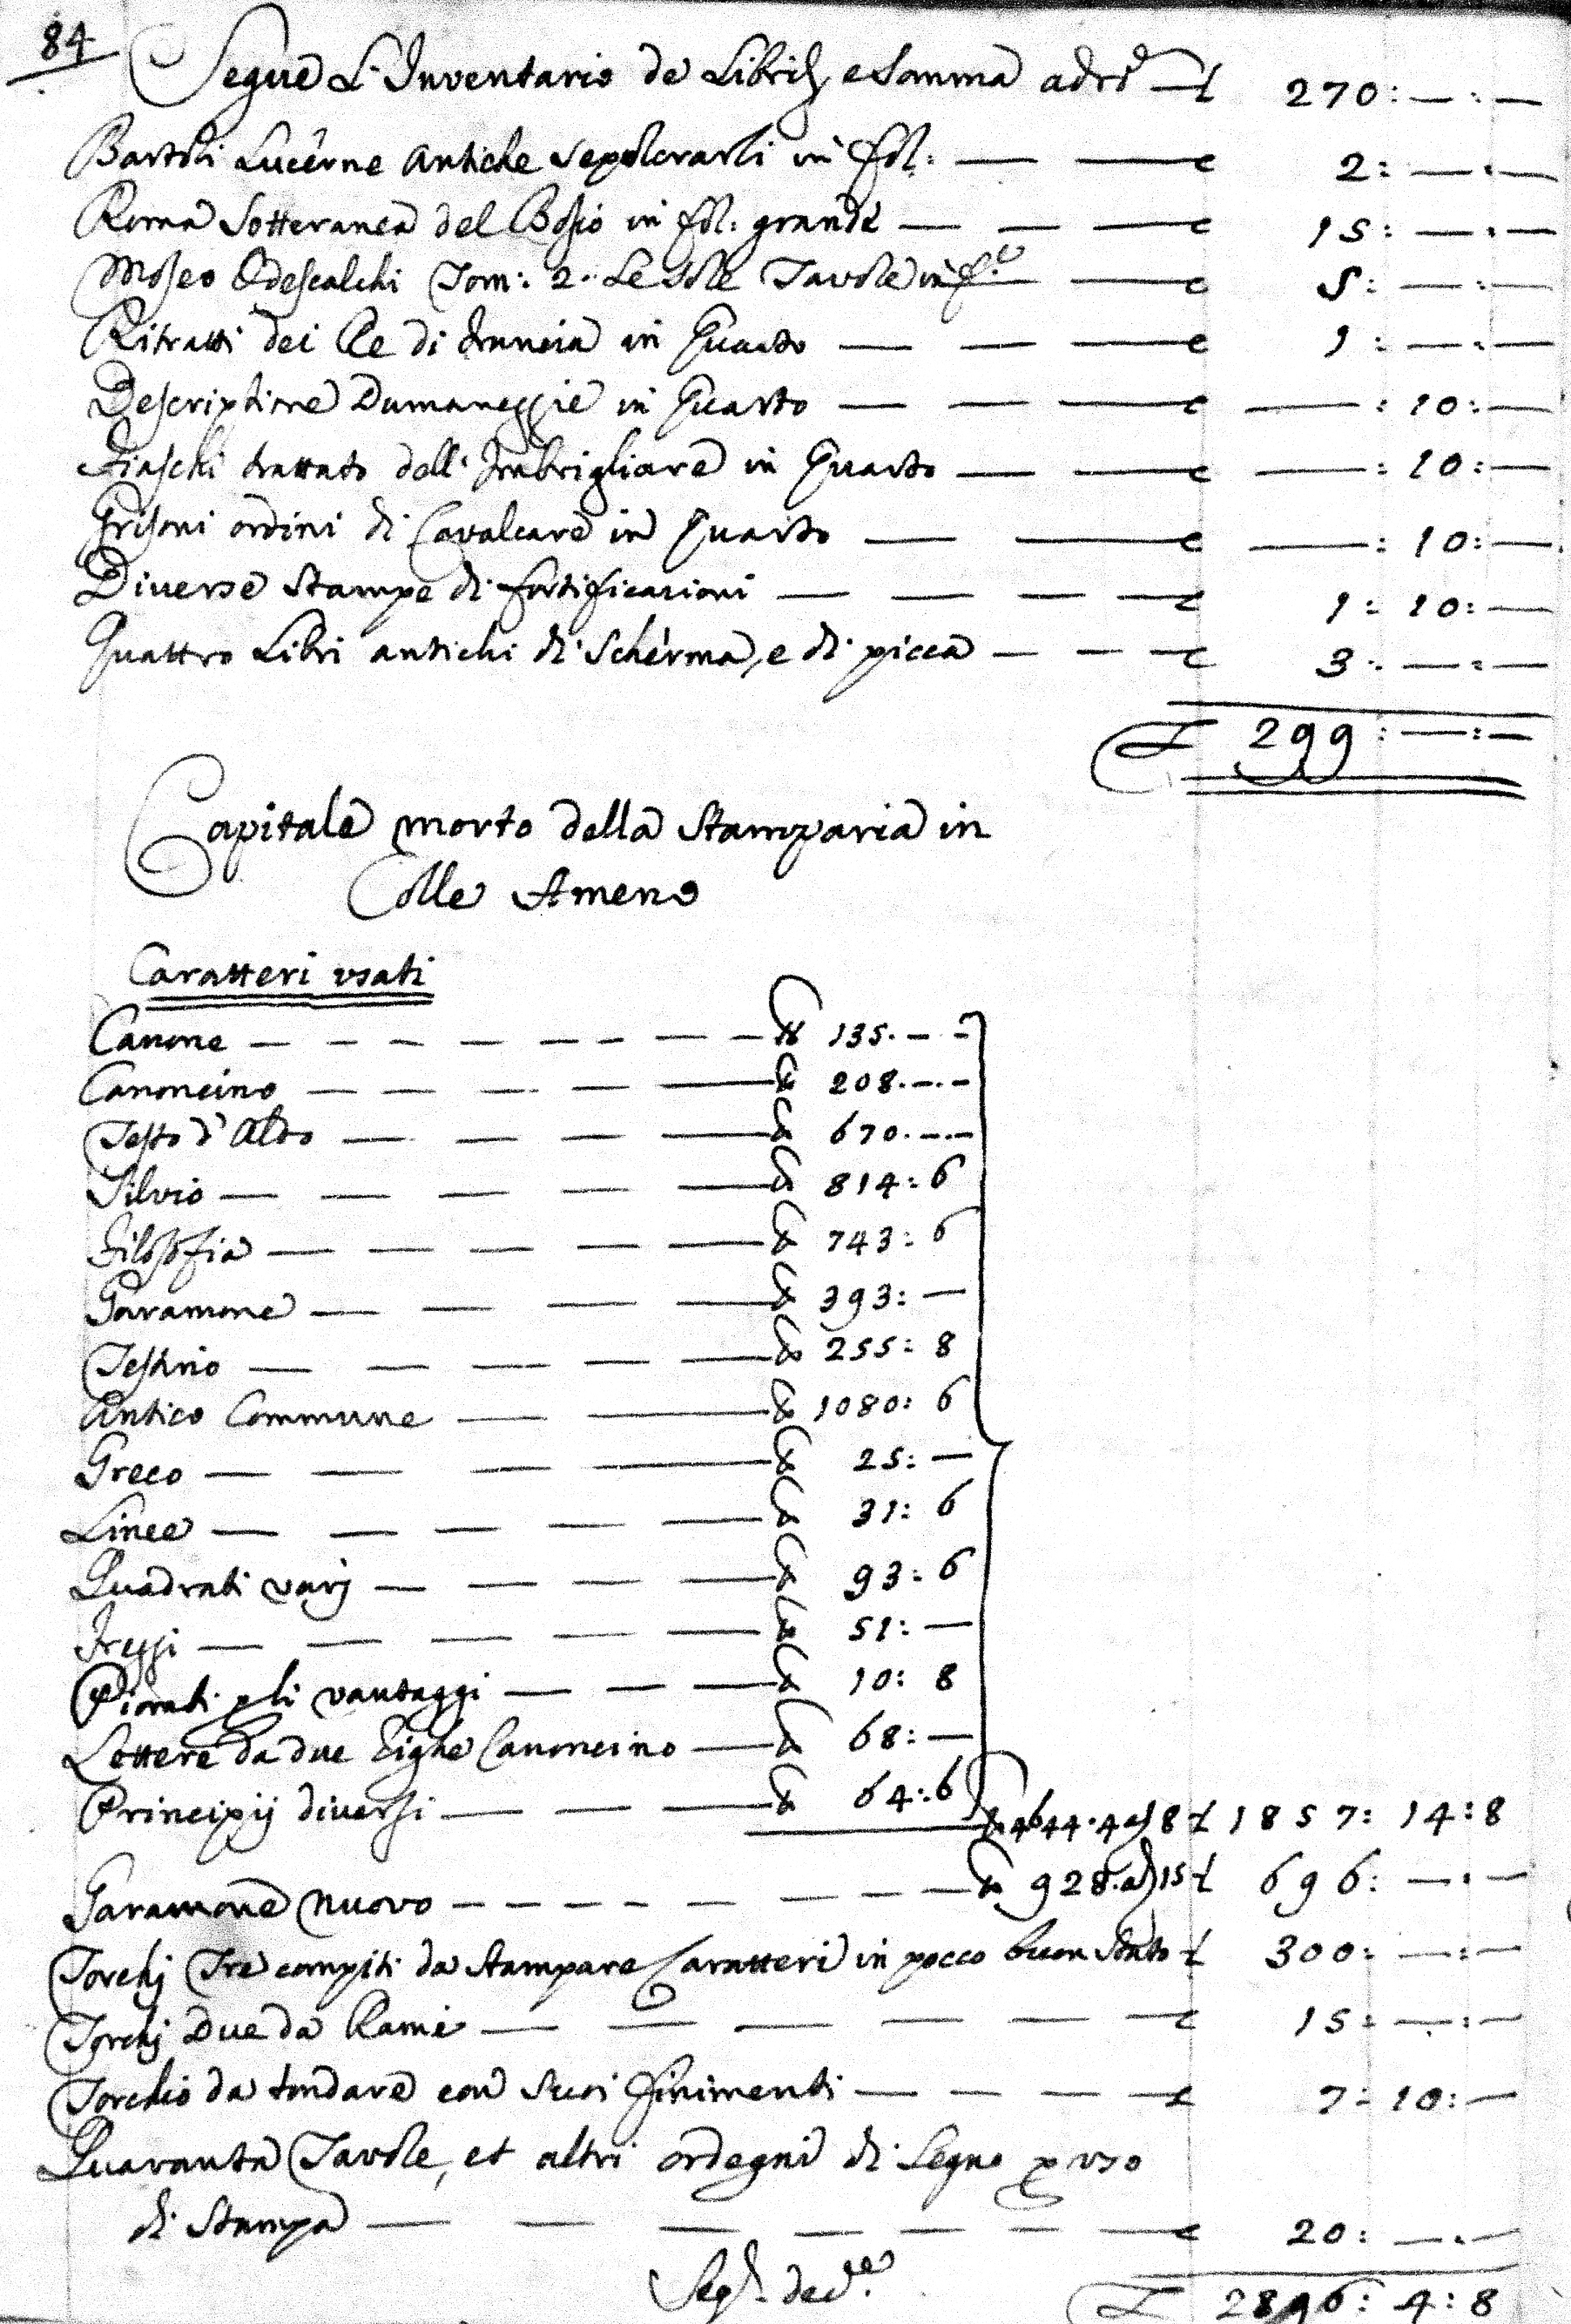 84
Segue L'Inventario de Libri, e Somma adrò — £ 270: — : —
Bartoli Lucerne Antiche Sepolcrarli in fol: — — £ 2: — : —
Roma Sotteranea del Bosio in fol: grande — — — £ 15: — : —
Moseo Odescalchi Tom: 2.. Le Sole Tavole in f.º — £ 5: — : —
Ritratti dei Re di Francia in Quarto — — — £ 1: — : —
Descriptione Dumaneggie in Quarto — — — £ — : 10: —
Fiaschi trattato dell'Imbrigliare in Quarto — — £ — : 10: —
Grisoni ordini di Cavalcare in Quarto — — £ — : 10: —
Diverse Stampe di fortificazioni — — — — £ 1: 10: —
Quattro Libri antichi di Scherma, e di picca — — — £ 3: — : —
£ 299: — : —
Capitale morto della Stamparia in
Colle Ameno
Caratteri usati
Canone — — — — — — — — — ℔ 135. — —
Canoncino — — — — — ℔ 208. — . —
Testo d'Aldo — — — — ℔ 670. — . —
Silvio — — — — — ℔ 814: 6
Filosofia — — — — — ℔ 743: 6
Garamone — — — — ℔ 393: —
Testino — — — — — ℔ 255: 8
Antico Commune — — ℔ 1080: 6
Greco — — — — ℔ 25: —
Linee — — — — — ℔ 31: 6
Quadrati varj — — — — ℔ 93: 6
Freggi — — — — — ℔ 51: —
Piorati p li vantaggi — — — ℔ 10: 8
Lettere da due Righe Canoncino — ℔ 68: —
Principij diversi — — — ℔ 64: 6 ℔ 4644. 4 a 8 £ 1857: 14: 8
Garamone nuovo — — — — — — — — ℔ 928. a 15 £ 696: — : —
Torchj Tre compiti da Stampare Caratteri in pocco buon Stato £ 300: — : —
Torchj Due da Rame — — — — — — £ 15: — : —
Torchio da tondare con Suoi finimenti — — — — £ 7: 10: —
Quaranta Tavole, et altri ordegni di Legno p uso
di Stampa — — — — — — — £ 20: — . —
£ 2896: 4: 8